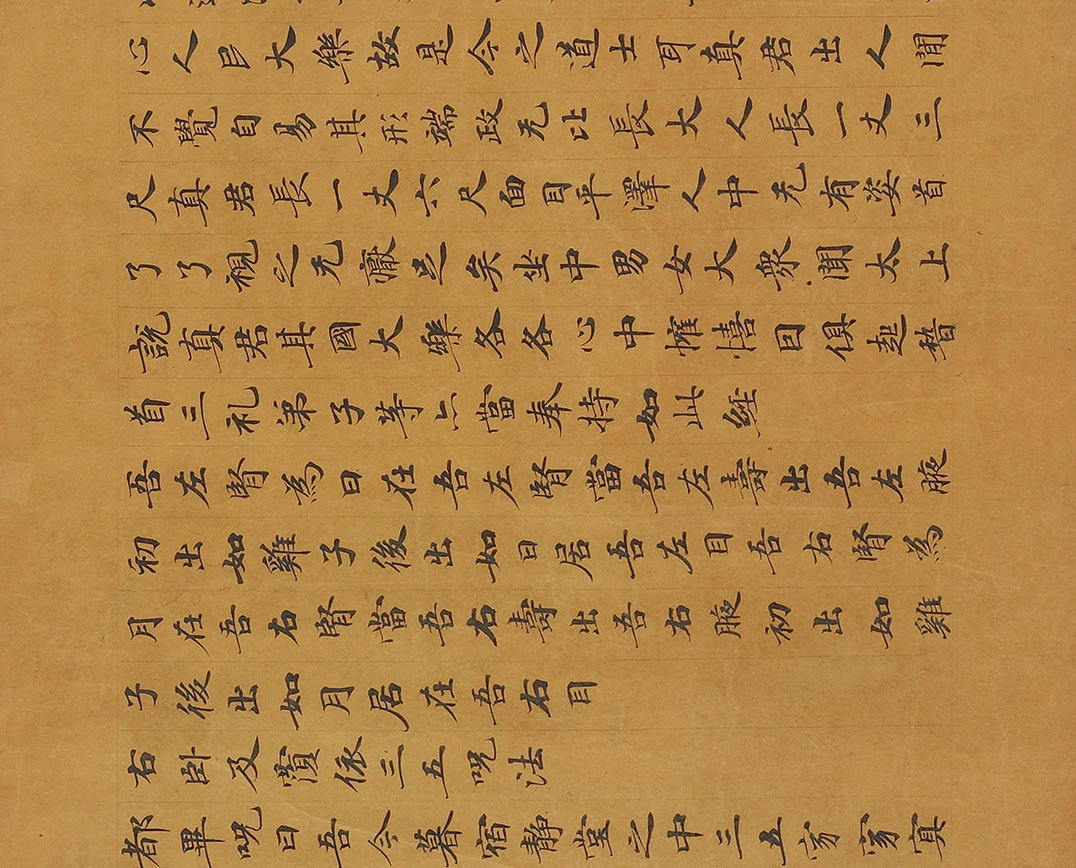 心人民大樂故是今之道士耳真君出人間
不覺自易其形端政无比長大人長一丈三
尺真君長一丈六尺面目平澤人中无有姿首
了了視之无厭足矣坐中男女大衆聞太上
說真君其國大樂各各心中懽憘因俱起稽
首三礼弟子等亦當奉持如此經
吾左腎為日在吾左腎當吾左壽出吾左腋
初出如雞子後出如日居吾左目吾右腎為
月在吾右腎當吾右壽出吾右腋初出如雞
子後出如月居在吾右目
右卧及依三五呪法
都畢呪曰吾今暮宿靜堂之中三五窈窈冥